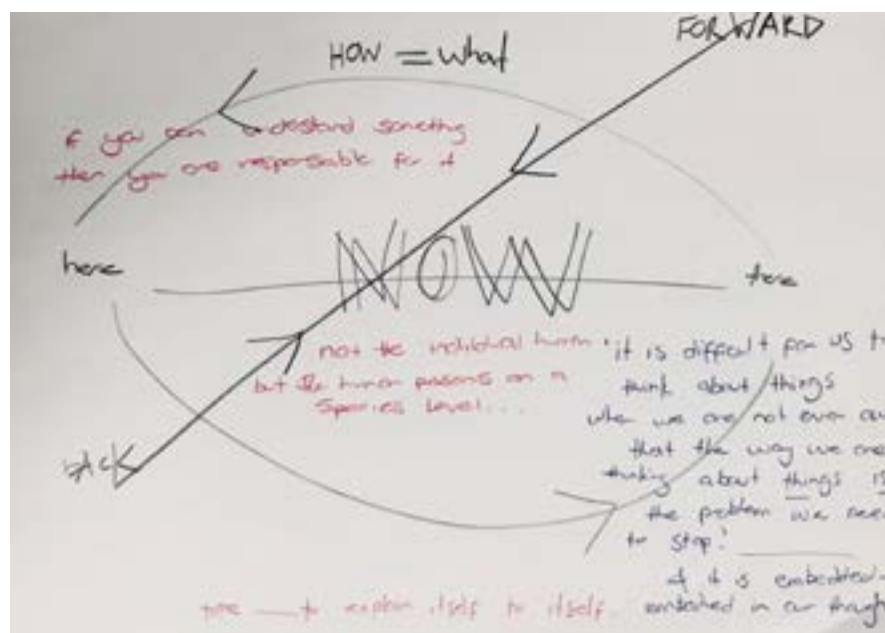 FORWARD
HOW = what
if you can understand something
then you are responsible for it
here
NOW
there
not the individual human
but the human persons on a
Species Level...
BACK
"it is difficult for us t
think about things
when we are not even aw
that the way we are
thinking about things is
the problem we nee
to stop!
if it is embedded
embodied in our though
time to explain itself to itself